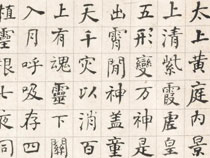 太上黃庭内景
上清紫霞虛
五形變萬神是
出霄閒神蓋童
天千災以消百
上有魂靈下關
入月呼吸存四
植靈根七液